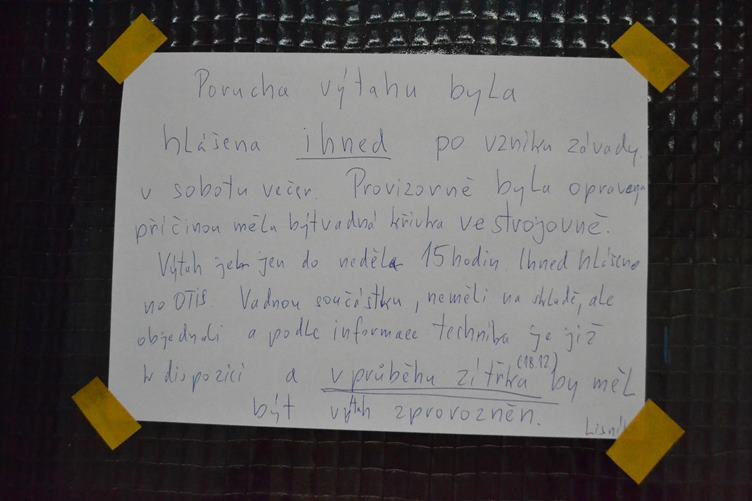 Porucha výtahu byla
hlášena ihned po vzniku závady
v sobotu večer. Provizorně byla opravena
příčinou měla být vadná křivka ve strojovně.
Výtah jel jen do neděle 15 hodin. Ihned hlášeno
no OTIS. Vadnou součástku, neměli na skladě, ale
objednali a podle informace technika je již
k dispozici a v průběhu zítřka (18.12) by měl
být výtah zprovozněn.